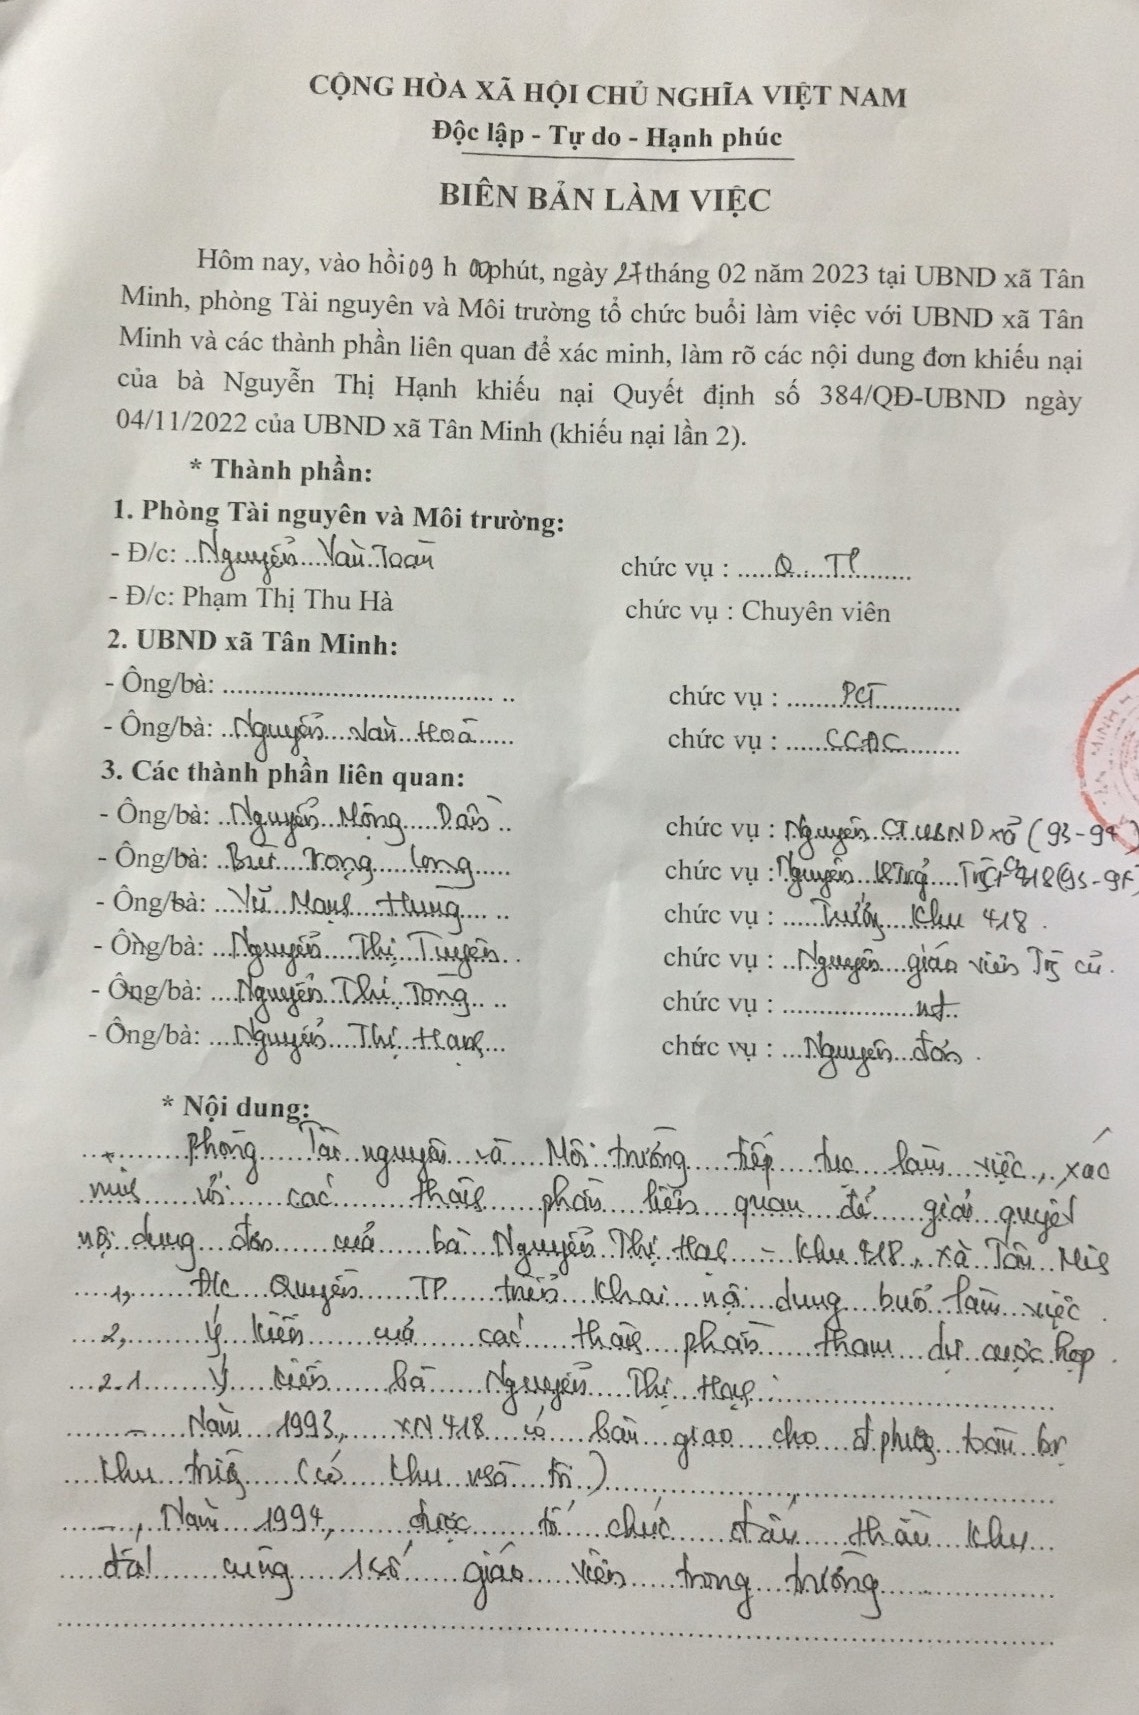 CỘNG HÒA XÃ HỘI CHỦ NGHĨA VIỆT NAM
Độc lập - Tự do - Hạnh phúc
BIÊN BẢN LÀM VIỆC
Hôm nay, vào hồi 09 h 00 phút, ngày 27 tháng 02 năm 2023 tại UBND xã Tân
Minh, phòng Tài nguyên và Môi trường tổ chức buổi làm việc với UBND xã Tân
Minh và các thành phần liên quan để xác minh, làm rõ các nội dung đơn khiếu nại
của bà Nguyễn Thị Hạnh khiếu nại Quyết định số 384/QĐ-UBND ngày
04/11/2022 của UBND xã Tân Minh (khiếu nại lần 2).
* Thành phần:
1. Phòng Tài nguyên và Môi trường:
- Đ/c: Nguyễn Văn Toàn chức vụ : Q. TP
- Đ/c: Phạm Thị Thu Hà chức vụ : Chuyên viên
2. UBND xã Tân Minh:
- Ông/bà: chức vụ : PCT
- Ông/bà: Nguyễn Văn Hoà chức vụ : CCĐC
3. Các thành phần liên quan:
- Ông/bà: Nguyễn Mộng chức vụ : Nguyên CT UBND xã (93-97)
- Ông/bà: Bùi Trọng Long chức vụ : Nguyên 418
- Ông/bà: Vũ Mạnh Hùng chức vụ : Trưởng Khu 418.
- Ông/bà: Nguyễn Thị Tuyên chức vụ : Nguyên giáo viên Trg cũ.
- Ông/bà: Nguyễn Thị chức vụ : nt
- Ông/bà: Nguyễn Thị Hạnh chức vụ : Nguyên đơn.
* Nội dung:
Phòng Tài nguyên và Môi trường tiếp tục làm việc, xác
minh với các thành phần liên quan để giải quyết
nội dung đơn của bà Nguyễn Thị Hạnh - Khu 418, xã Tân Minh
1, Đ/c Quyền TP triển khai nội dung buổi làm việc.
2, Ý kiến của các thành phần tham dự cuộc họp.
2.1 Ý kiến bà Nguyễn Thị Hạnh:
- Năm 1993, XN 418 có bàn giao cho đ phương toàn bộ
khu (có khu )
- Năm 1994, được tổ chức đấu thầu khu
đất cùng 1 số giáo viên trong trường